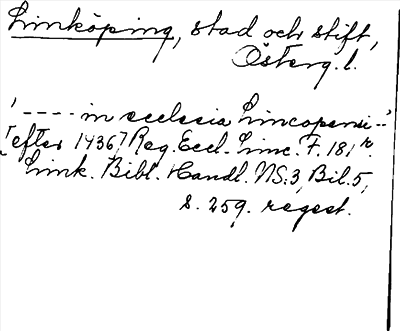 Linköping, stad och stift,
Österg. l.
' ---- in ecclesia Lincopensi --'
[efter 1436] Reg. Eccl. Linc. F. 181 r.
Link. Bibl. Handl. NS: 3, Bil. 5,
s. 259. regest.